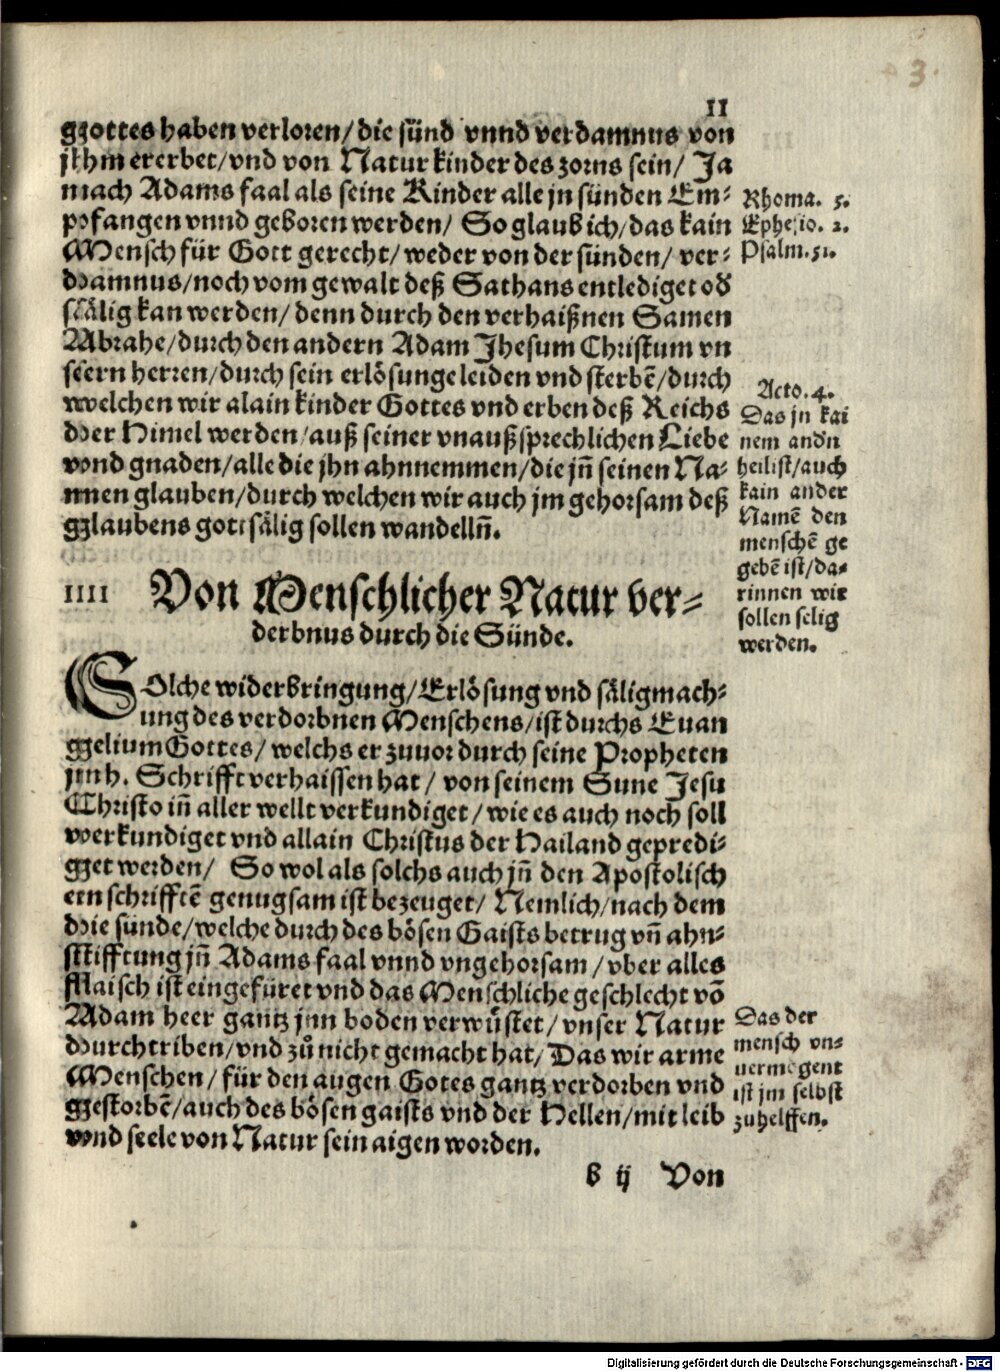 3.
II
gottes haben verloren/die sünd vnnd verdamnus von
jhm ererbet/vnd von Natur kinder des zorns sein/ Ja
nach Adams faal als seine Kinder alle jn sünden Em⸗
pfangen vnnd geboren werden/ So glaub ich/das kain
Mensch für Gott gerecht/ weder von der sünden/ ver⸗
damnus/noch vom gewalt deß Sathans entlediget od
sälig kan werden/ denn durch den verhaißnen Samen
Abrahe/durch den andern Adam Jhesum Christum vn
sern herren/durch sein erlösunge leiden vnd sterbē/durch
welchen wir alain kinder Gottes vnd erben deß Reichs
der Himel werden/auß seiner vnaußsprechlichen Liebe
vnd gnaden/alle die jhn ahnnemmen/die jñ seinen Na⸗
men glauben/durch welchen wir auch jm gehorsam deß
glaubens gottsälig sollen wandellñ.
Rhoma. 5.
Ephesio. 2.
Psalm. 51.
Acto. 4.
Das jn kai
nem andn
heil ist/auch
kain ander
Namē den
menschē ge
gebē ist/da⸗
rinnen wir
sollen selig
werden.
IIII Von Menschlicher Natur ver⸗
derbnus durch die Sünde.
SOlche widerbringung/Erlösung vnd säligmach⸗
ung des verdorbnen Menschens/ist durchs Euan
gelium Gottes/ welchs er zuuor durch seine Propheten
jnn h. Schrifft verhaissen hat/ von seinem Sune Jesu
Christo iñ aller wellt verkundiget/wie es auch noch soll
verkundiget vnd allain Christus der Hailand gepredi⸗
get werden/ So wol als solchs auch jñ den Apostolisch
en schrifftē genugsam ist bezeuget/ Nemlich/nach dem
die sünde/welche durch des bösen Gaists betrug vñ ahn⸗
stifftung jñ Adams faal vnnd vngehorsam/vber alles
flaisch ist eingefüret vnd das Menschliche geschlecht vō
Adam heer gantz jnn boden verwüstet/vnser Natur
durchtriben/vnd zů nicht gemacht hat/ Das wir arme
Menschen/für den augen Gotes gantz verdorben vnd
gestorbē/auch des bösen gaists vnd der Hellen/mit leib
vnd seele von Natur sein aigen worden.
Das der
mensch vn⸗
uermögent
ist jm selbst
zuhelffen.
b ij Von
Digitalisierung gefördert durch die Deutsche Forschungsgemeinschaft - DFG